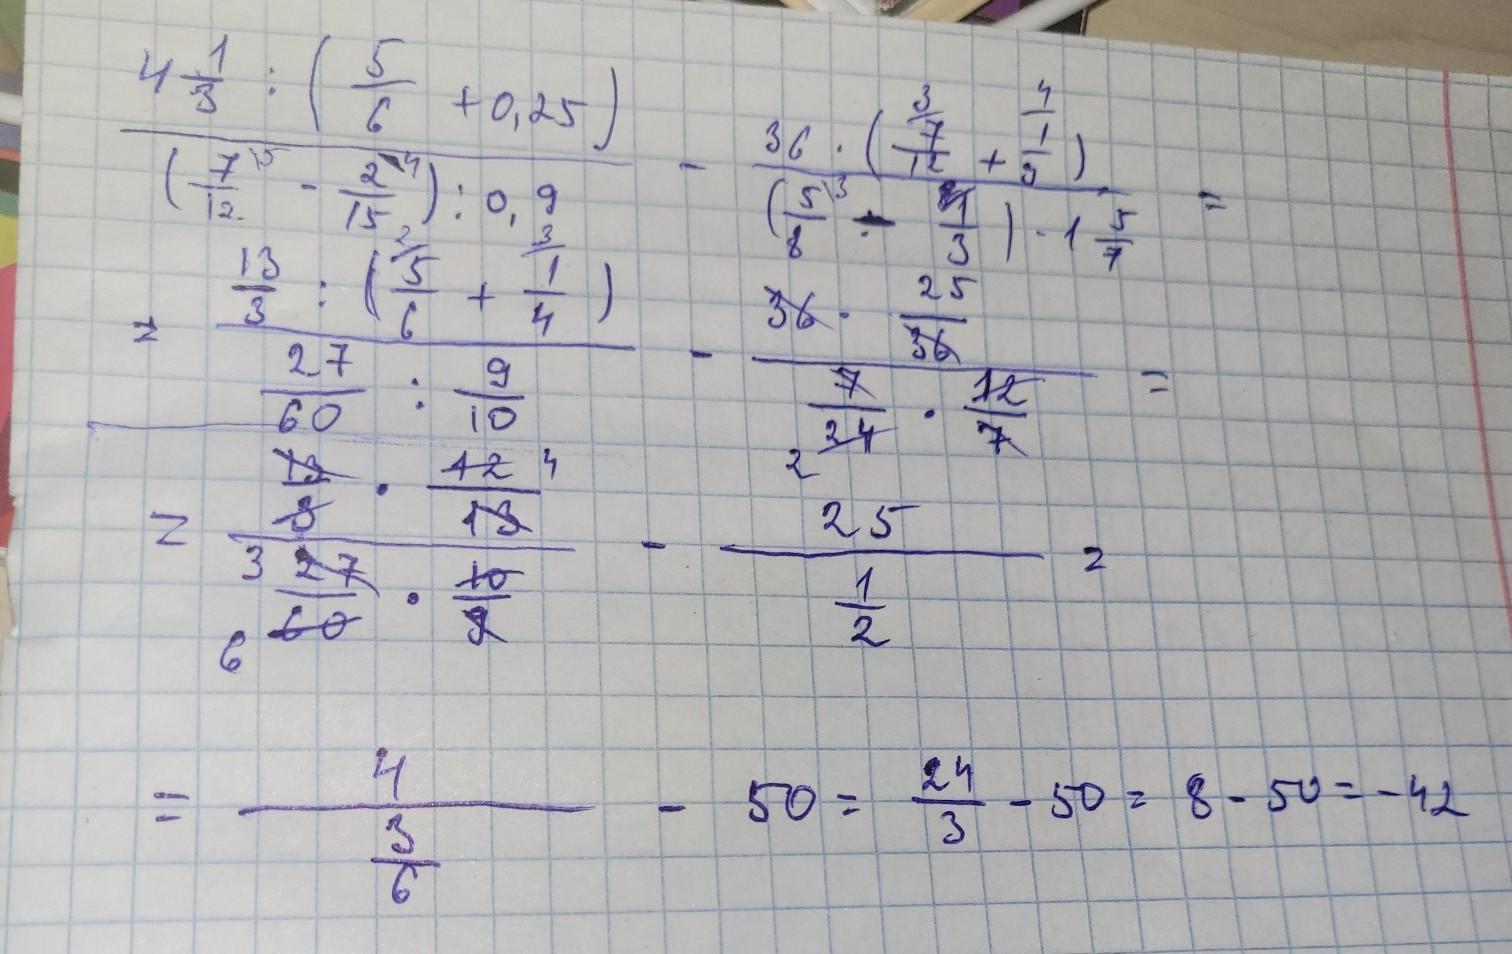 4 1/3 : ( 5/6 + 0,25 ) / ( 7/12 \5 - 2/15 \4 ) : 0,9 - 36 · ( 3/ 7/12 + 4/ 1/9 ) / ( 5/8 \3 - 1/3 ) · 1 5/7 =
= 13/3 : ( 2/ 5/6 + 3/ 1/4 ) / 27/60 : 9/10 - 36 · 25/36 / 7/24 2 · 12/7 =
= 13/3 · 12/13 4 / 3 27/60 6 · 10/9 - 25 / 1/2 =
= 4 / 3/6 - 50 = 24/3 - 50 = 8 - 50 = -42